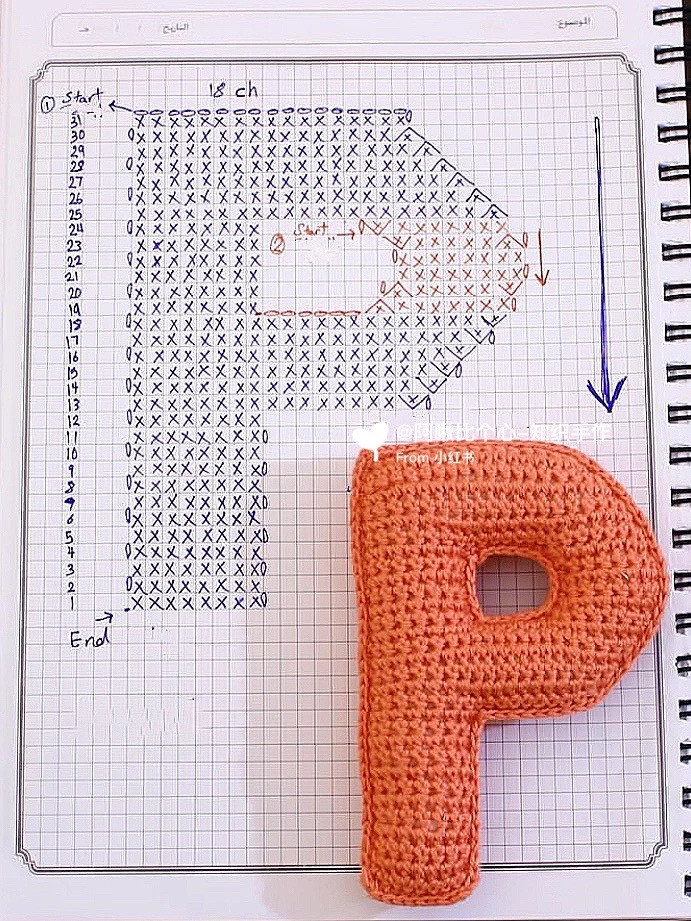 الموضوع:
التاريخ: / / هـ
18 ch
① Start
31
30
29
28
27
26
25
24
② Start
23
22
21
20
19
18
17
16
15
14
13
12
11
10
9
8
7
6
5
4
3
2
1
End
From 小红书